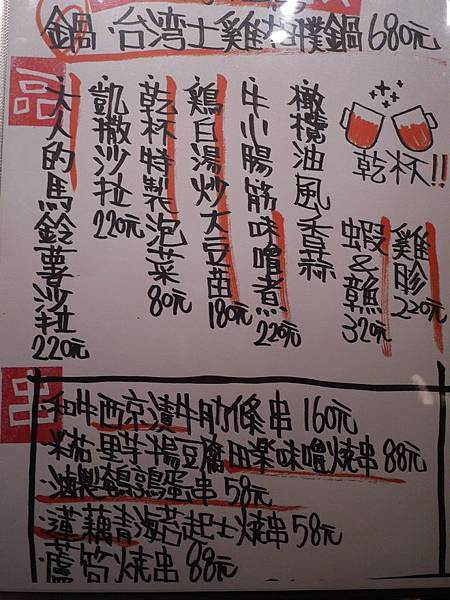 鍋·台湾土雞相撲鍋680元
品
大人的馬鈴薯沙拉220元
凱撒沙拉220元
乾杯特製泡菜80元
鶏白湯炒大豆苗180元
牛小腸筋味噌煮220元
橄欖油風香蒜
蝦&雞320元
雞胗220元
乾杯!!
串
·和牛西京漬牛肋條串160元
·米茄里芋半湯豆腐田楽味噌焼串88元
·滷製鵪鶉蛋串58元
·蓮藕青海苔起士燒串58元
·蘆筍燒串88元